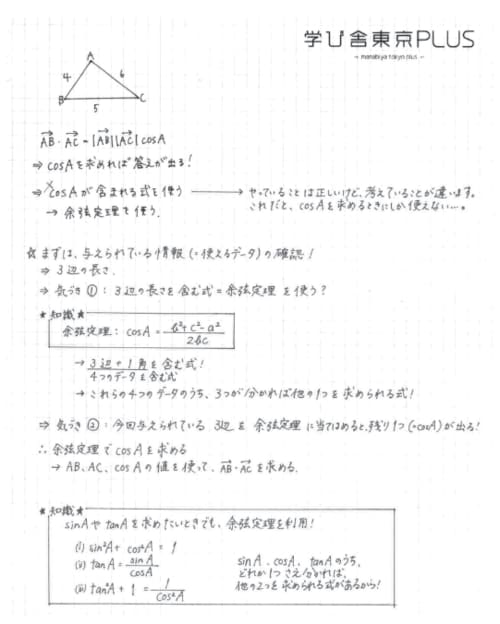 学び舎東京PLUS
- manabiya tokyo plus -
A
4
6
B
5
C
AB・AC = |AB||AC| cosA
⇒ cosAを求めれば答えが出る!
⇒ cosAが含まれる式を使う → やっていることは正しいけど、考えていることが違います。
→ 余弦定理で使う. これだと、cosAを求めるときにしか使えない…。
☆ まずは、与えられている情報(=使えるデータ)の確認!
⇒ 3辺の長さ.
⇒ 気づき①:3辺の長さを含む式=余弦定理を使う?
★知識★
余弦定理:cosA = b²+c²-a² / 2bc
→ 3辺+1角を含む式!
4つのデータを含む式
→ これらの4つのデータのうち、3つが分かれば他の1つを求められる式!
⇒ 気づき②:今回与えられている3辺を余弦定理に当てはめると、残り1つ(=cosA)が出る!
∴ 余弦定理でcosAを求める
→ AB、AC、cosAの値を使って、AB・ACを求める.
★知識★
sinAやtanAを求めたいときでも、余弦定理を利用!
(i) sin²A + cos²A = 1
(ii) tanA = sinA / cosA
(iii) tan²A + 1 = 1 / cos²A
sinA、cosA、tanAのうち、
どれか1つさえ分かれば、
他の2つを求められる式があるから!